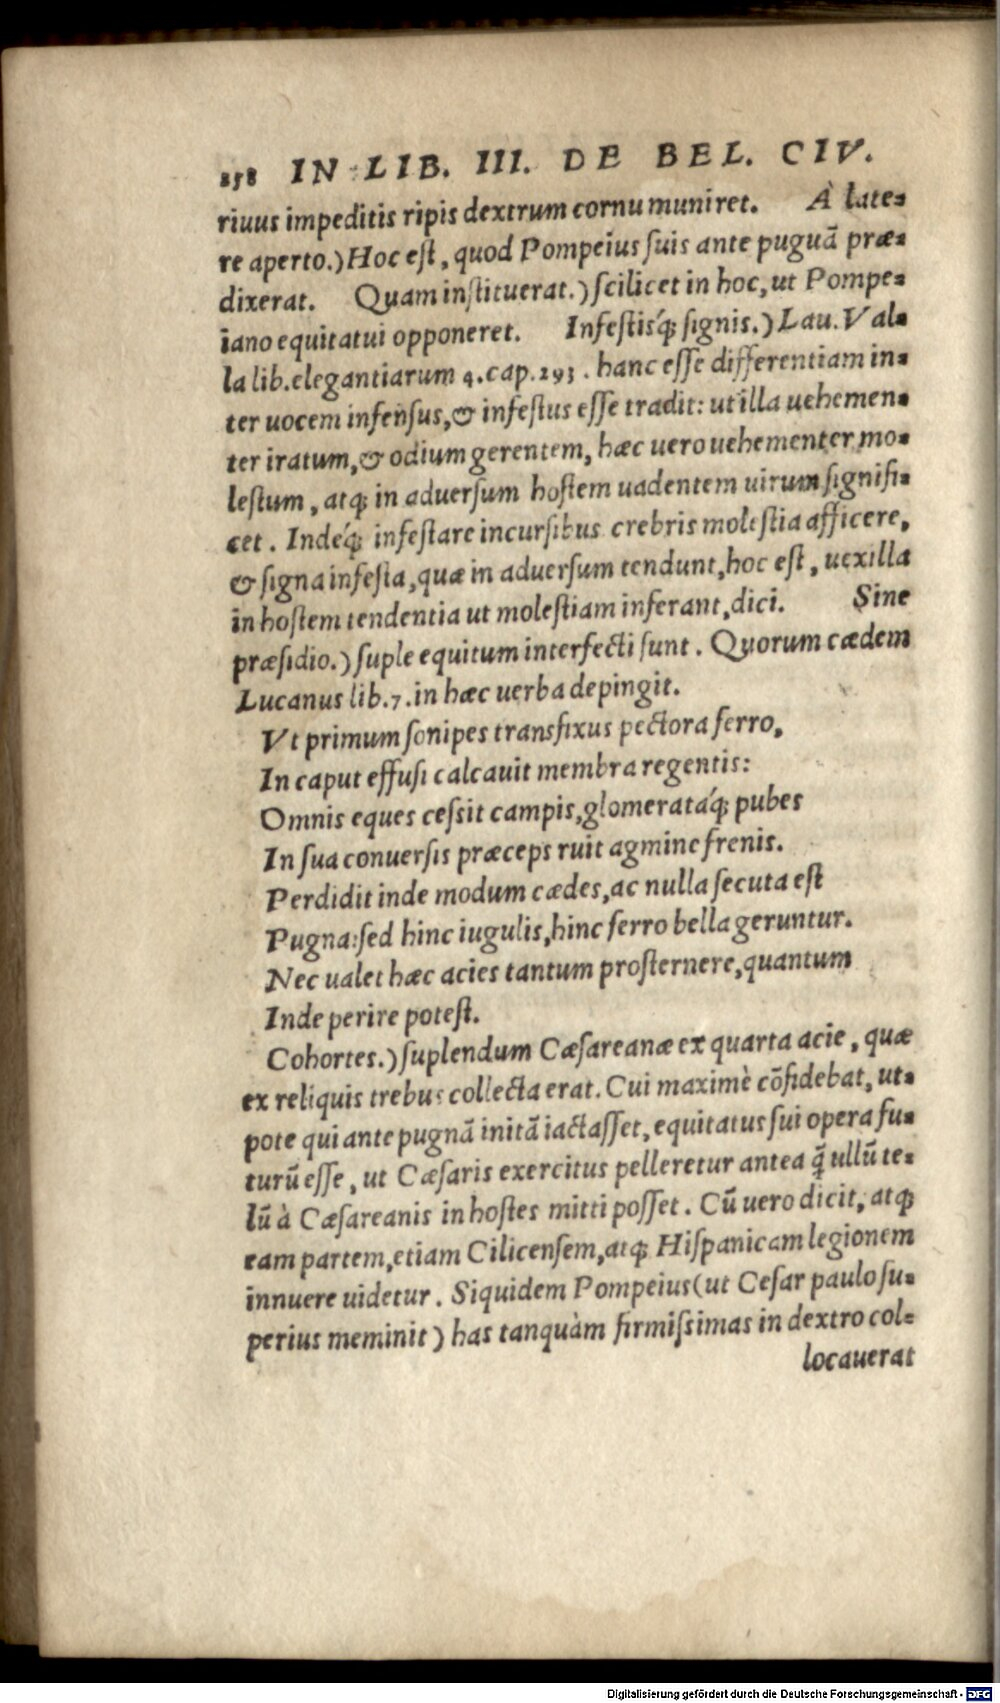 258 IN LIB. III. DE BEL. CIV.
riuus impeditis ripis dextrum cornu muniret. À late-
re aperto.) Hoc est, quod Pompeius suis ante puguã præ-
dixerat. Quam instituerat.) scilicet in hoc, ut Pompe-
iano equitatui opponeret. Infestisq́; signis.) Lau. Val-
la lib. elegantiarum 4. cap. 293. hanc esse differentiam in-
ter uocem infensus, & infestus esse tradit: ut illa uehemen-
ter iratum, & odium gerentem, hæc uero uehementer mo-
lestum, atq; in aduersum hostem uadentem uirum signifi-
cet. Indeq́; infestare incursibus crebris molestia afficere,
& signa infesta, quæ in aduersum tendunt, hoc est, uexilla
in hostem tendentia ut molestiam inferant, dici. Sine
præsidio.) suple equitum interfecti sunt. Quorum cædem
Lucanus lib. 7. in hæc uerba depingit.
Vt primum sonipes transfixus pectora ferro,
In caput effusi calcauit membra regentis:
Omnis eques cessit campis, glomerataq́; pubes
In sua conuersis præceps ruit agmine frenis.
Perdidit inde modum cædes, ac nulla secuta est
Pugna: sed hinc iugulis, hinc ferro bella geruntur.
Nec ualet hæc acies tantum prosternere, quantum
Inde perire potest.
Cohortes.) suplendum Cæsareanæ ex quarta acie, quæ
ex reliquis trebus collecta erat. Cui maximè cõfidebat, ut-
pote qui ante pugnã initã iactasset, equitatus sui opera fu-
turũ esse, ut Cæsaris exercitus pelleretur antea q̃ ullũ te-
lũ à Cæsareanis in hostes mitti posset. Cũ uero dicit, atq;
eam partem, etiam Cilicensem, atq; Hispanicam legionem
innuere uidetur. Siquidem Pompeius (ut Cesar paulo su-
perius meminit) has tanquàm firmissimas in dextro col-
locauerat
Digitalisierung gefördert durch die Deutsche Forschungsgemeinschaft - DFG